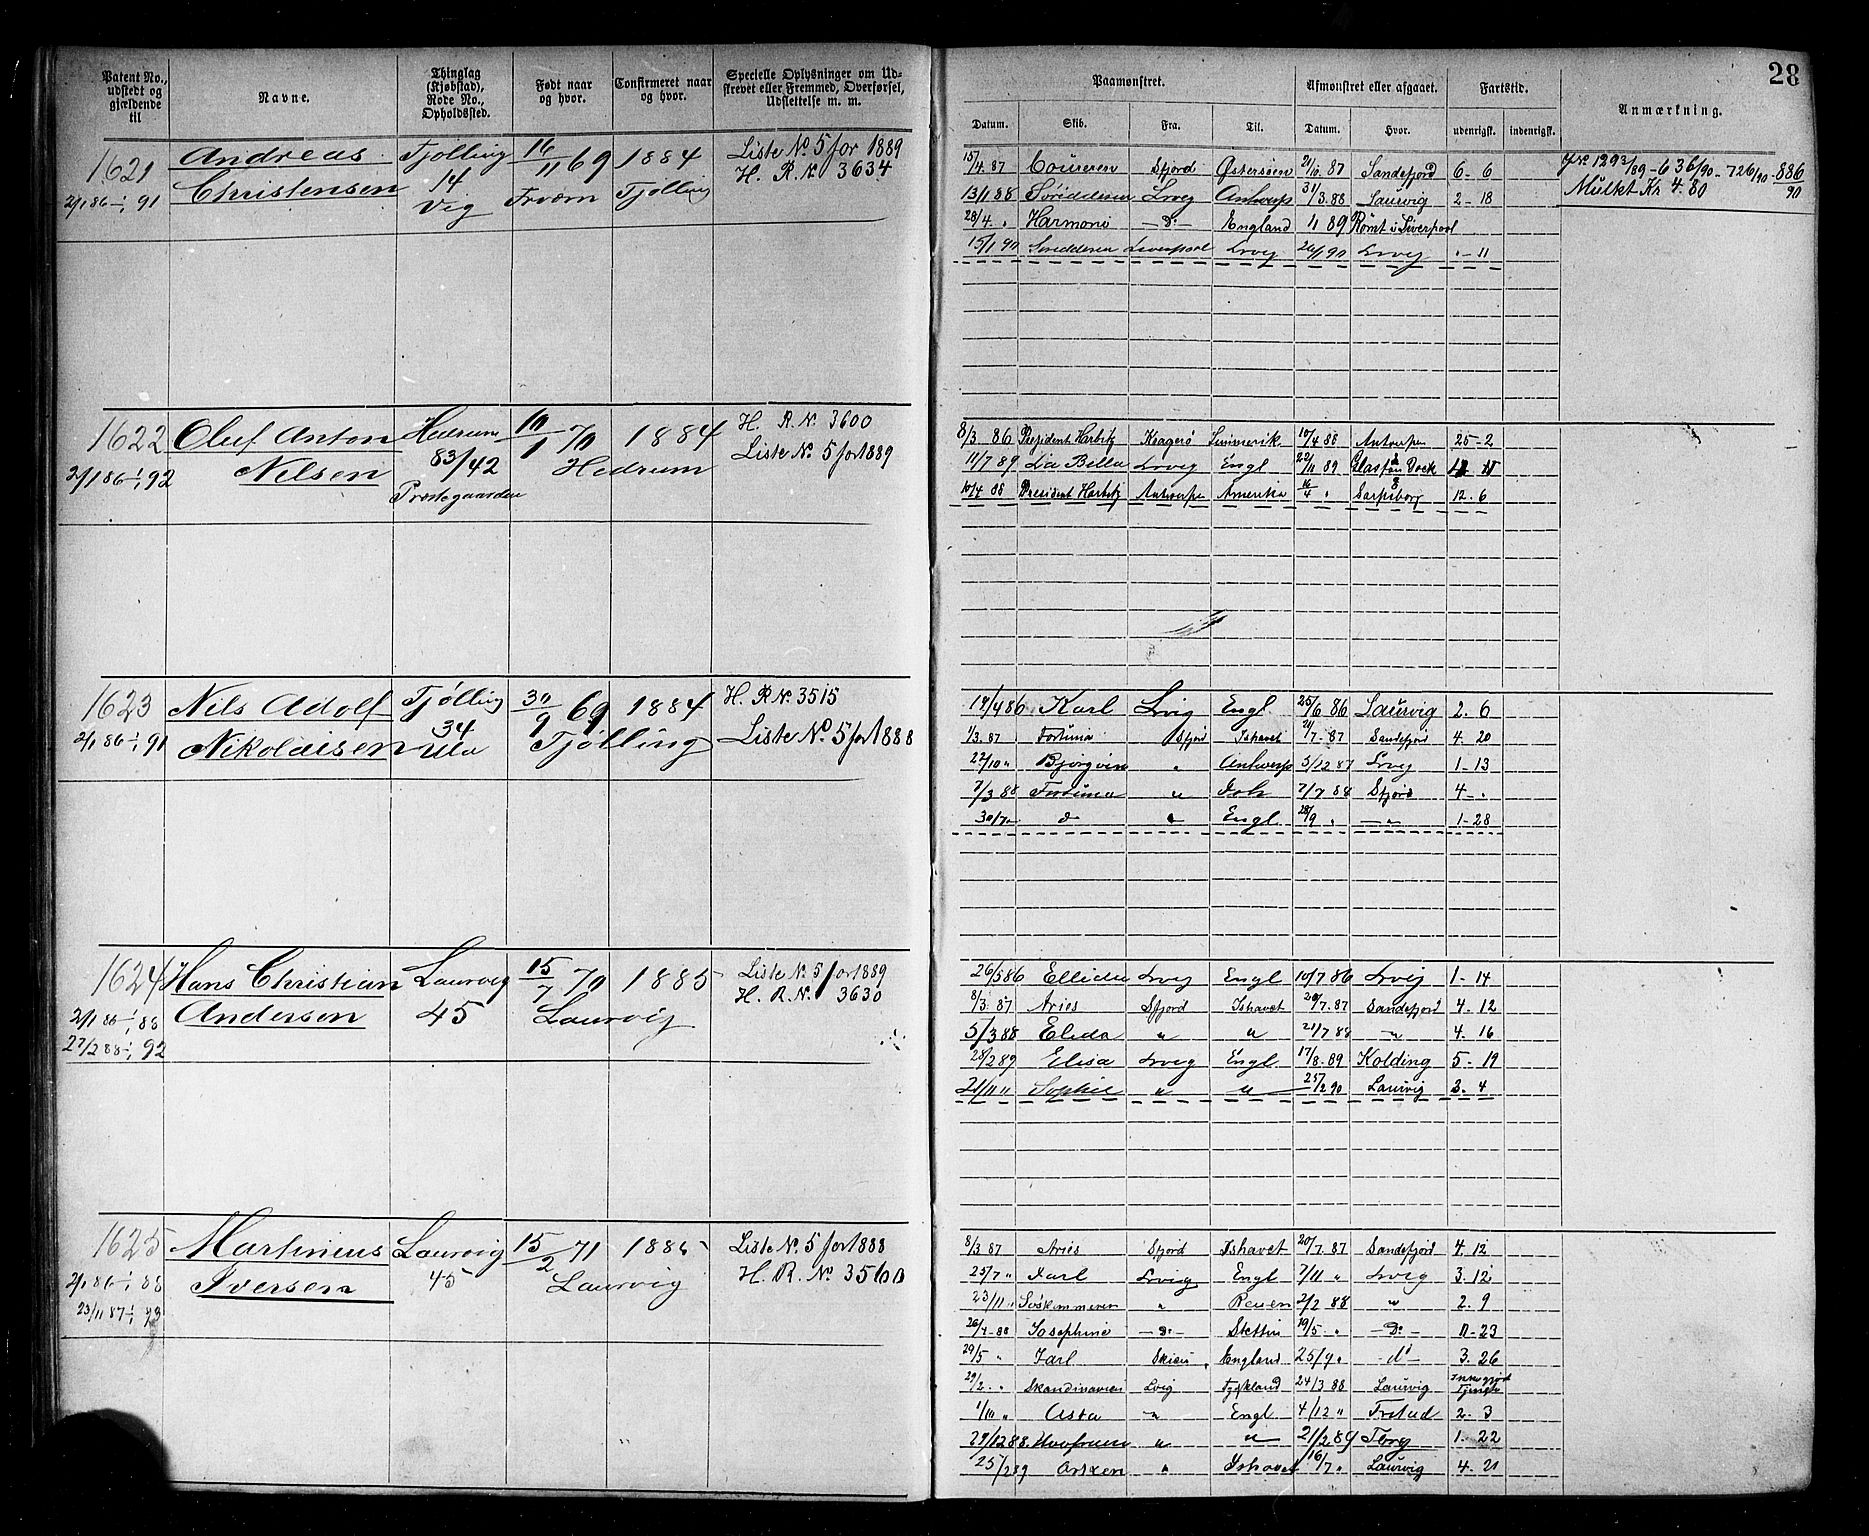 28
Patent No., udstedt og gjældende til
Navne.
Thinglag (Kjøbstad), Rode No., Opholdssted.
Født naar og hvor.
Confirmeret naar og hvor.
Specielle Oplysninger om Udskrevet eller Fremmed, Overførsel, Udslettelse m. m.
Paamønstret.
Afmønstret eller afgaaet.
Fartstid.
Anmærkning.
Datum. Skib. Fra. Til. Datum. Hvor. udenrigsk. indenrigsk.
1621 Andreas Tjølling 16/11 69 1884 Liste No. 5 for 1889
Christensen 14 Tjølling H. R. No. 3634
2/1 86 - 1/1 91 Vig
15/4. 87 Sfjord Østersøen 21/10. 87 Sandefjord 6 - 6
13/1 88 Lrvg Antwerp 31/3. 88 Laurvig 2 - 18 Mulkt Kr. 4. 80
28/4. " Harmoni - Do - England 1/1 89 Rømt i Liverpool
15/1 90 Liverpool Lrvg Lrvg " - 11
1622 Oluf Anton Hedrum 10/1 70 1884 H. R. No. 3600
2/1 86 - 1/1 92 Nilsen 83/42 Hedrum Liste No. 5 for 1889
Prestegaarden
8/3. 86 President Harbitz Kragerø 10/4 88 Antwerpen 25 - 2
11/7 89 La Bella Lrvig Engl 22/11 89
10/4 88 President Harbitz Antwerpen Amerika 16/4 " Sarpsborg 12. 6
1623 Nils Adolf Tjølling 30/9 69 1884 H. R. No. 3515
2/1 86 - 1/1 91 Nikolaisen 34 Ula Tjølling Liste No. 5 for 1888
19/4 86 Karl Lrvig Engl 25/6 86 Laurvig 2. 6
1/3. 87 Fortuna Sfjord Ishavet 21/7. 87 Sandefjord 4. 20
22/10 " Bjørgvin " Antwerp 5/12 87 Lrvg 1 - 13
7/3 88 Fortuna " Ish 7/7 88 Sfjord 4 - "
30/7 " do " Engl 28/9 " - " - 1 - 28
1624 Hans Christian Laurvig 15/7 70 1885 Liste No. 5 for 1889
2/1 86 - 1/1 88 Andersen 45 Laurvig H. R. No. 3630
27/2 88 - 1/1 92
26/5 86 Ellida Lrvg Engl 10/7 86 Lrvig 1 - 14
8/3. 87 Aries Sfjord Ishavet 20/7. 87 Sandefjord 4. 12
5/3 88 Elida " " 21/7 88 - " - 4. 16
28/2 89 Elisa Lrvig Engl 17/8. 89 Kolding 5. 19
21/11 " Sophie " " 25/2 90 Laurvig 3. 4
1625 Martinius Laurvig 15/2 71 1885 Liste No. 5 for 1888
2/1 86 - 1/1 88 Iversen 45 Laurvig H. R. No. 3560
23/11 87 - 1/1 93
8/3. 87 Aries Sfjord Ishavet 20/7. 87 Sandefjord 4. 12
25/7 " Karl Lrvig Engl 7/11 " Lrvig 3. 12
23/11 " " 2/2 88 " 2. 9
26/4 - 88 Josephine - Do - Stettin 19/5 " - Do - 0 - 23
29/5 " Karl Skien England 25/9 " - do - 3. 26
29/2. " Skandinavien Lvig Tydskland 24/3 88 Laurvig
1/10 " Asta - " - Engl 4/12 " 2. 3
29/12 88 Havfruen " " 21/2 89 1. 22
25/2 89 " Ishavet 16/7 " Laurvig 4. 21